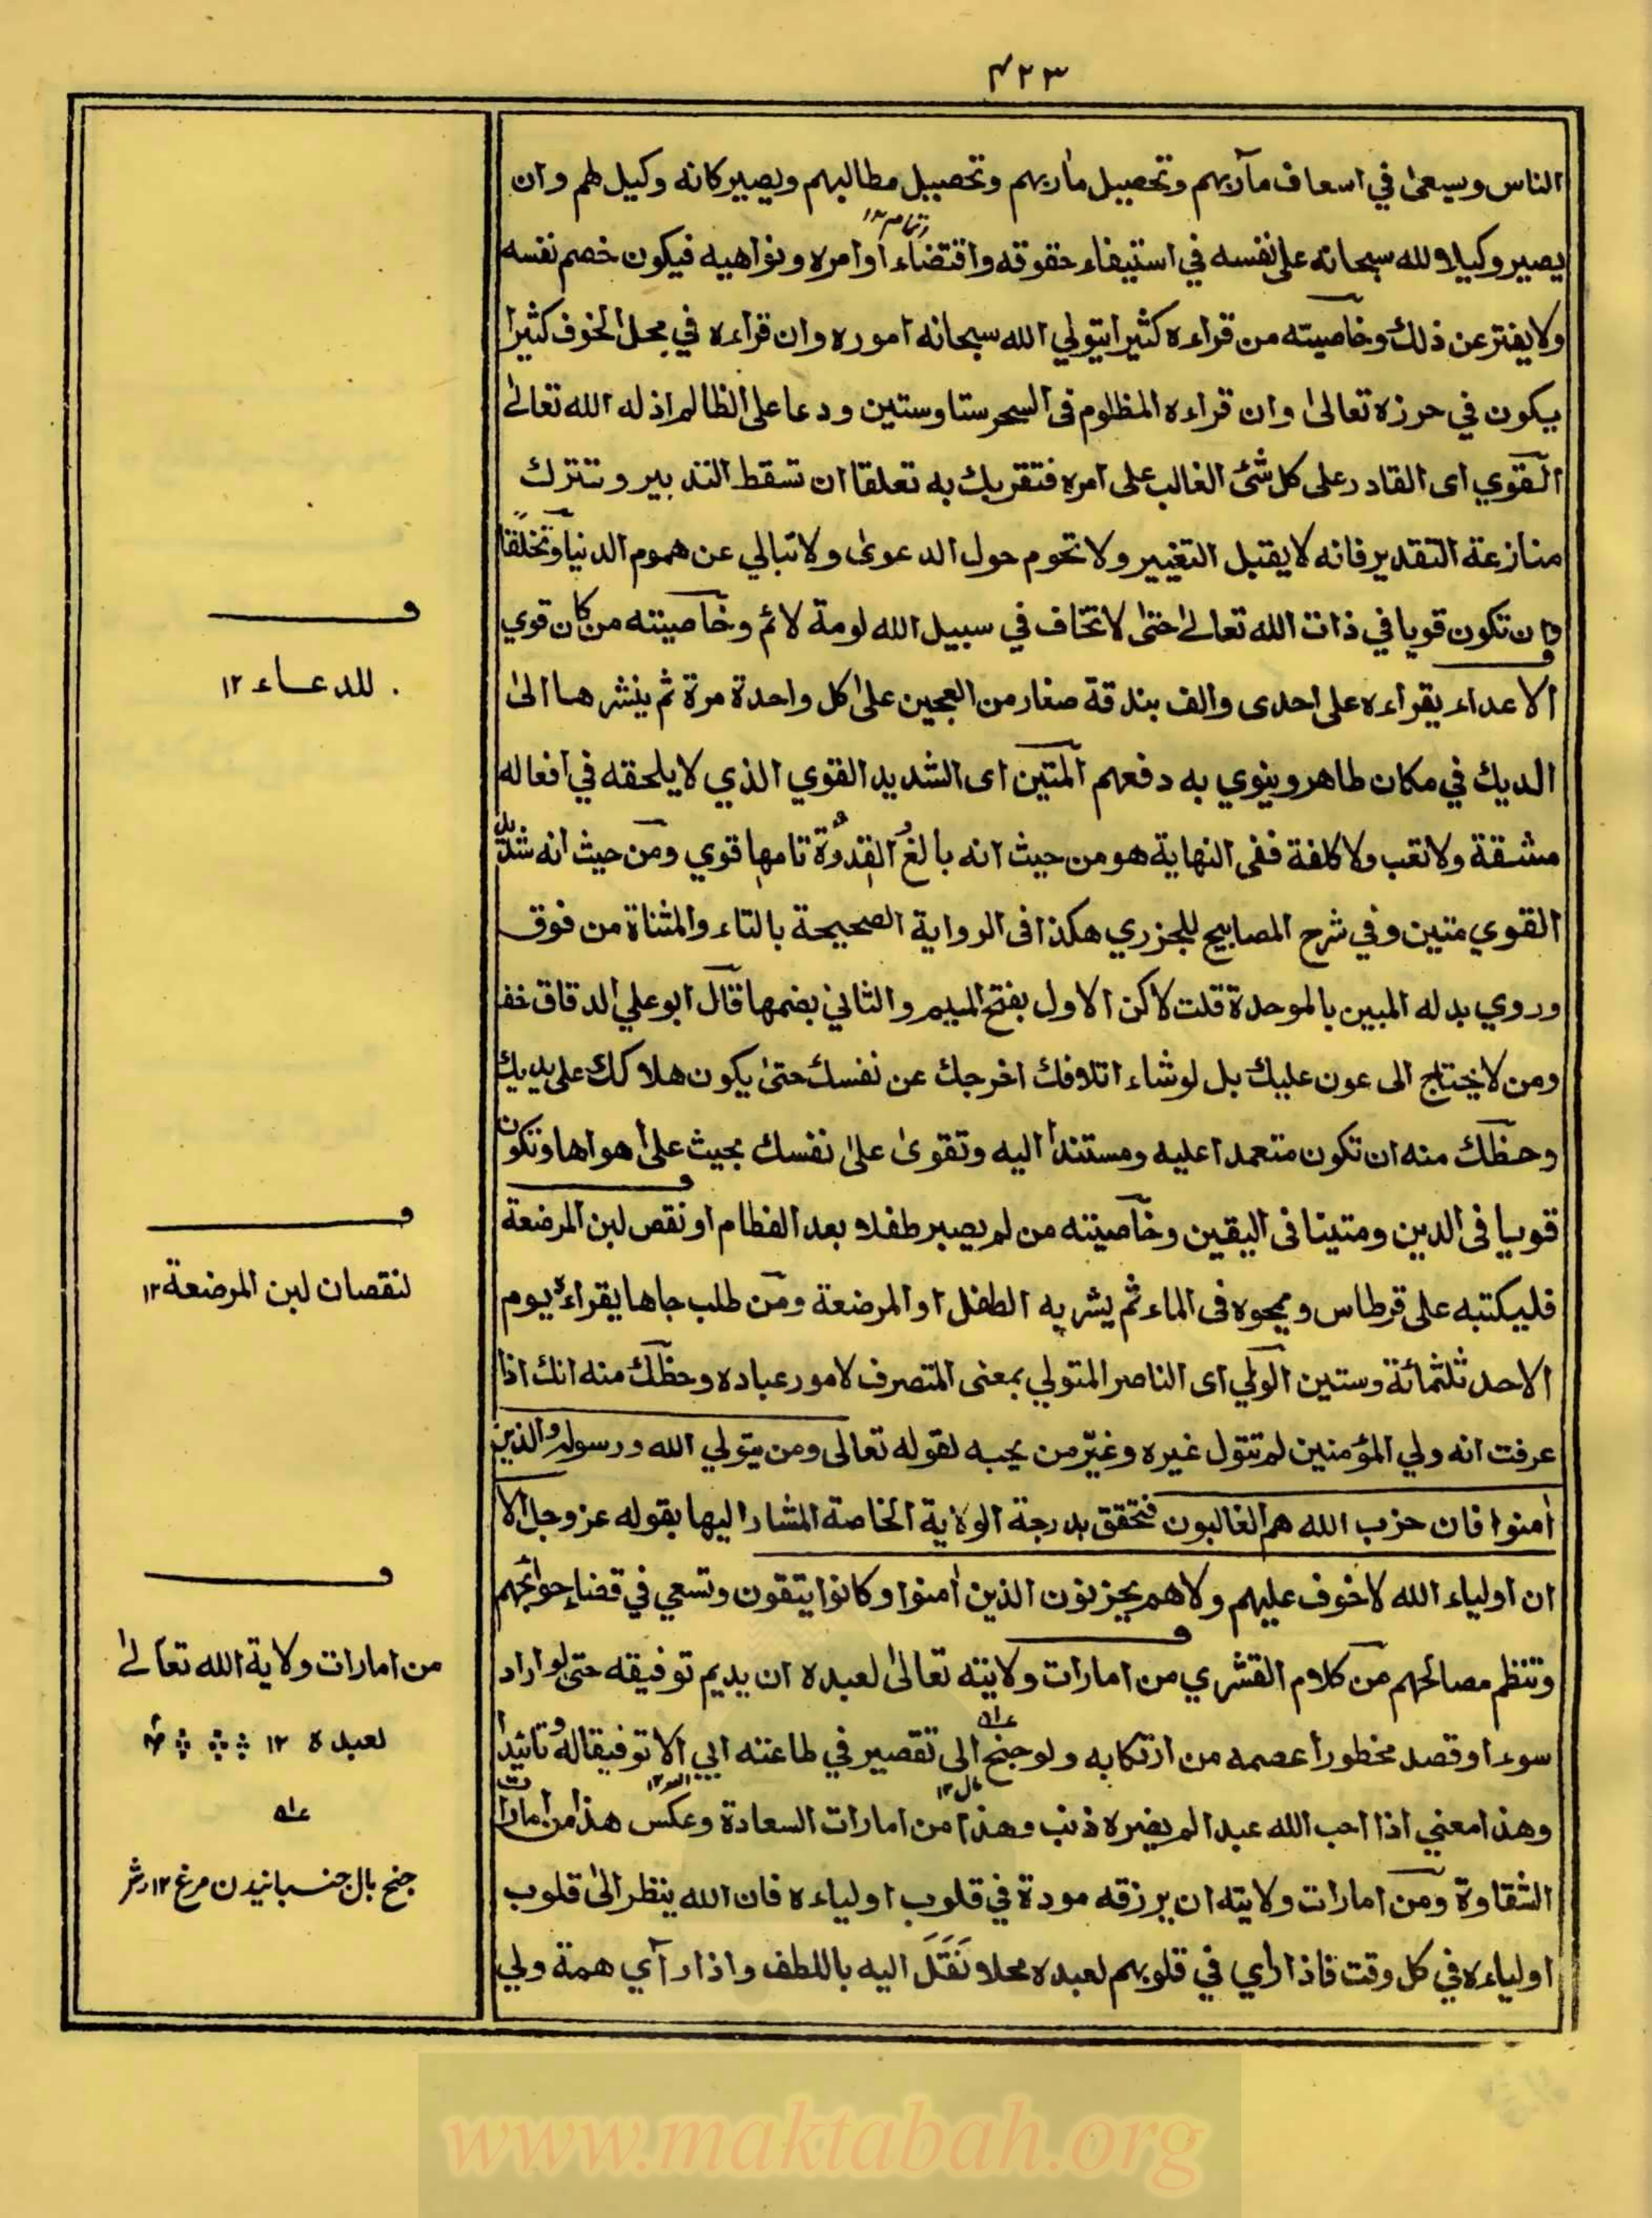 ٤٢٣
الناس ويسعى في اسعاف مآربهم وتحصيل مأربهم وتحصيل مطالبهم ويصير كانه وكيل لهم وان
يصير وكيلا لله سبحانه على نفسه في استيفاء حقوقه واقتضاء اوامره ونواهيه فيكون خصم نفسه
ولا يفتر عن ذلك وخاصيته من قراءه كثيرا يتولي الله سبحانه اموره وان قراءه في محل الخوف كثيرا
يكون في حرزه تعالى وان قراءه المظلوم فى السحر ستا وستين ودعا على الظالم اذله الله تعالى
القوي اى القادر على كل شئ الغالب على امره فتقربك به تعلقا ان تسقط التدبير وتترك
منازعة التقدير فانه لا يقبل التغيير ولا تحوم حول الدعوى ولا تبالي عن هموم الدنيا وتخلقا
وان تكون قويا في ذات الله تعالى حتى لا تخاف في سبيل الله لومة لائم وخاصيته من كان قوي
الاعداء يقراءه على احدى والف بندقة صغار من العجين على كل واحدة مرة ثم ينشرها الى
للدعاء ١٢
الديك في مكان طاهر وينوي به دفعهم المتين اى الشديد القوي الذي لا يلحقه في افعاله
مشقة ولا تعب ولا كلفة ففى النهاية هو من حيث انه بالغ القدرة تامها قوي ومن حيث انه شديد
القوي متين وفي شرح المصابيح للجزري هكذا فى الرواية الصحيحة بالتاء والمثناة من فوق
وروي بدله المبين بالموحدة قلت لاكن الاول بفتح الميم والثاني بضمها قال ابو علي الدقاق خف
ومن لا يحتاج الى عون عليك بل لو شاء اتلافك اخرجك عن نفسك حتى يكون هلاكك على يديك
وحظك منه ان تكون متعمدا عليه ومستندا اليه وتقوى على نفسك بحيث على هواها وتكون
قويا فى الدين ومتينا فى اليقين وخاصيته من لم يصبر طفلا بعد الفطام او نقص لبن المرضعة
فليكتبه على قرطاس ويمحوه فى الماء ثم يشربه الطفل او المرضعة ومن طلب جاها يقراءه يوم
لنقصان لبن المرضعة ١٢
الاحد ثلثمائة وستين الولي اى الناصر المتولي بمعنى المتصرف لامور عباده وحظك منه انك اذا
عرفت انه ولي المؤمنين لم تتول غيره وغير من يحبه لقوله تعالى ومن يتولي الله ورسوله والذين
اٰمنوا فان حزب الله هم الغالبون فتحقق بدرجة الولاية الخاصة المشار اليها بقوله عز وجل الا
ان اولياء الله لا خوف عليهم ولا هم يحزنون الذين اٰمنوا وكانوا يتقون وتسعي في قضاء حوائجهم
وتنظم مصالحهم من كلام القشري من امارات ولايته تعالى لعبده ان يديم توفيقه حتى لو اراد
من امارات ولاية الله تعالى
لعبده ١٢
سوءا وقصد محظورا عصمه من ارتكابه ولو جنح الى تقصير في طاعته ابي الا توفيقا له وتائيدا
وهذا معني اذا احب الله عبدا لم يضره ذنب وهذا من امارات السعادة وعكس هذا من امارات
الشقاوة ومن امارات ولايته ان يرزقه مودة في قلوب اولياءه فان الله ينظر الى قلوب
جنح بال جنبانيدن مرغ ١٢
اولياءه في كل وقت فاذا رأي في قلوبهم لعبده محلا نقل اليه باللطف واذا رآي همة ولي
www.maktabah.org